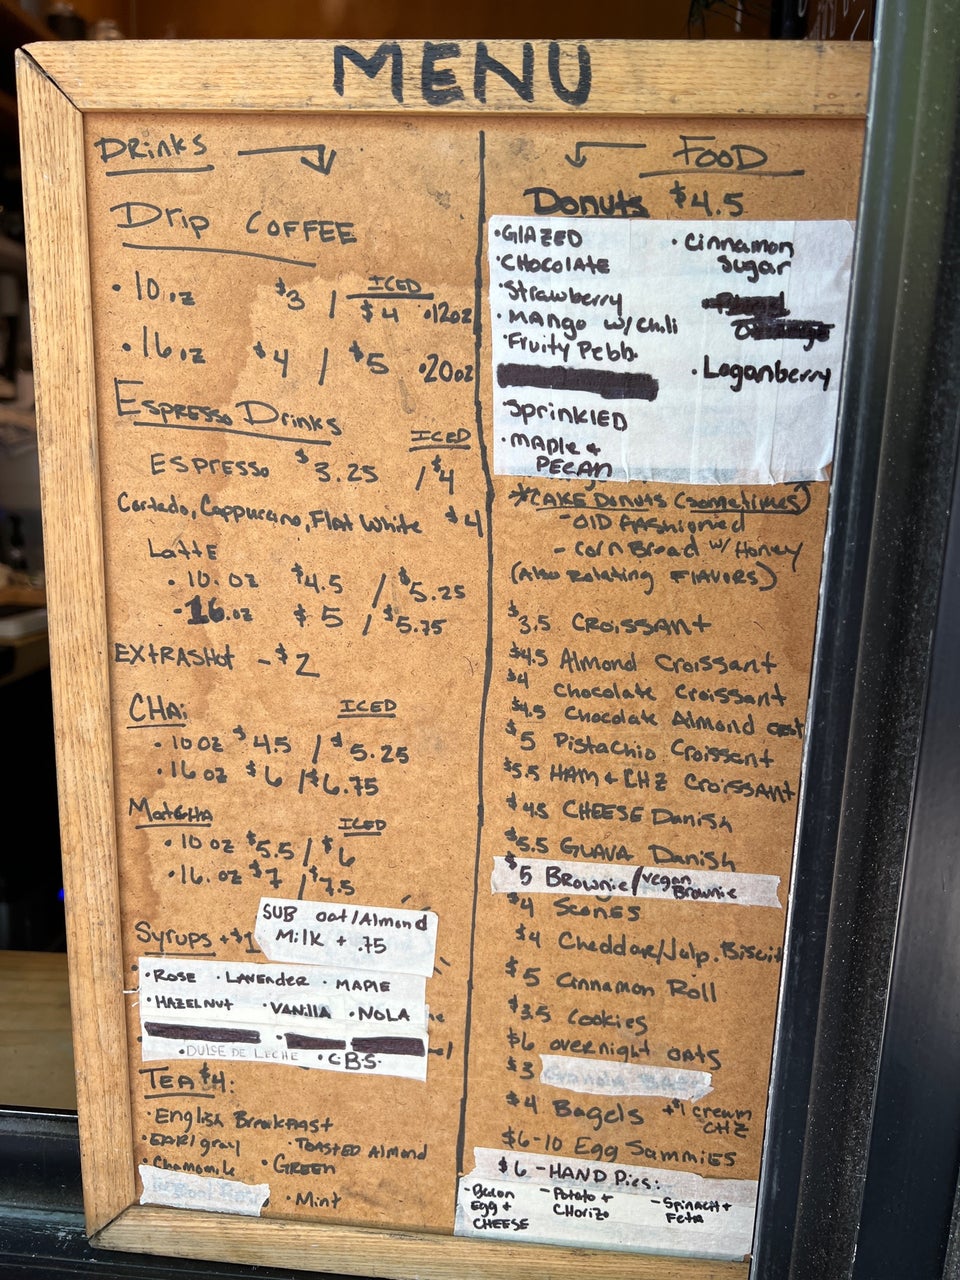 MENU
DRINKS
Drip COFFEE
ICED
• 10 oz $3 / $4 • 12oz
• 16 oz $4 / $5 • 20oz
Espresso Drinks
ICED
ESPRESSO $3.25 / $4
Cortado, Cappucino, Flat White $4
LATTE
• 10. oz $4.5 / $5.25
- 16.oz $5 / $5.75
EXTRA SHOT - $2
CHAi ICED
• 10 oz $4.5 / $5.25
• 16 oz $6 / $6.75
MATCHA ICED
• 10 oz $5.5 / $6
• 16. oz $7 / $7.5
SUB oat/Almond
Milk + .75
Syrups + $1
• ROSE • LAVENDER • MAPLE
• HAZELNUT • VANILLA • NOLA
• DULSE DE LECHE • C.B.S.
TEA $4:
• English Breakfast
• EARl gray • TOASTED Almond
• Chamomile • GREEN
• Mint
FOOD
Donuts $4.5
• GlAZED
• CHOCOLATE
• Strawberry
• MANgo w/ Chili
• Fruity Pebb.
SprinklED
• MAPle +
PECAN
• Cinnamon
Sugar
• Loganberry
*CAKE DONUTS (sometimes)
- OlD FASHIONed
- Corn Bread w/ Honey
(Also Rotating FlAVORS)
$3.5 CROISSANT
$4.5 Almond Croissant
$4 Chocolate Croissant
$4.5 Chocolate Almond
$5 Pistachio Croissant
$5.5 HAM + CHZ CroissANT
$4.5 CHEESE Danish
$5.5 GUAVA Danish
$5 Brownie/vegan
Brownie
$4 Scones
$4 Cheddar/Jalp. Biscuit
$5 Cinnamon Roll
$3.5 Cookies
$6 overnight OATS
$3
$4 Bagels + $1 cream
CHZ
$6-10 Egg SammiES
$6 - HAND Pies:
- Bacon
Egg +
CHEESE
- Potato +
CHorizo
- Spinach +
Feta